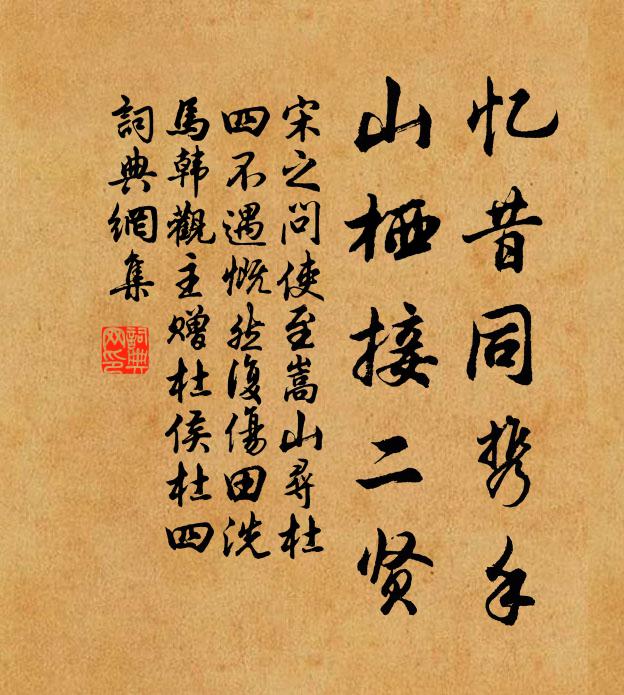 忆昔同携手
山栖接二贤
宋之问使至嵩山寻杜
四不遇慨然復傷田洗
馬韩觀主赠杜侯杜四
詞典網集
詞典
网印